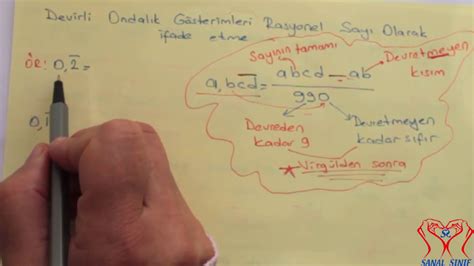 Devirli Ondalık Gösterimleri Rasyonel Sayı Olarak
ifade etme
Sayının tamamı
Devretmeyen
kısım
ÖR: 0,2̅ =
a,bc̅d̅ = abcd - ab
990
Devreden
kadar 9
Devretmeyen
kadar sıfır
* Virgülden sonra
0,1
SANAL SINIF